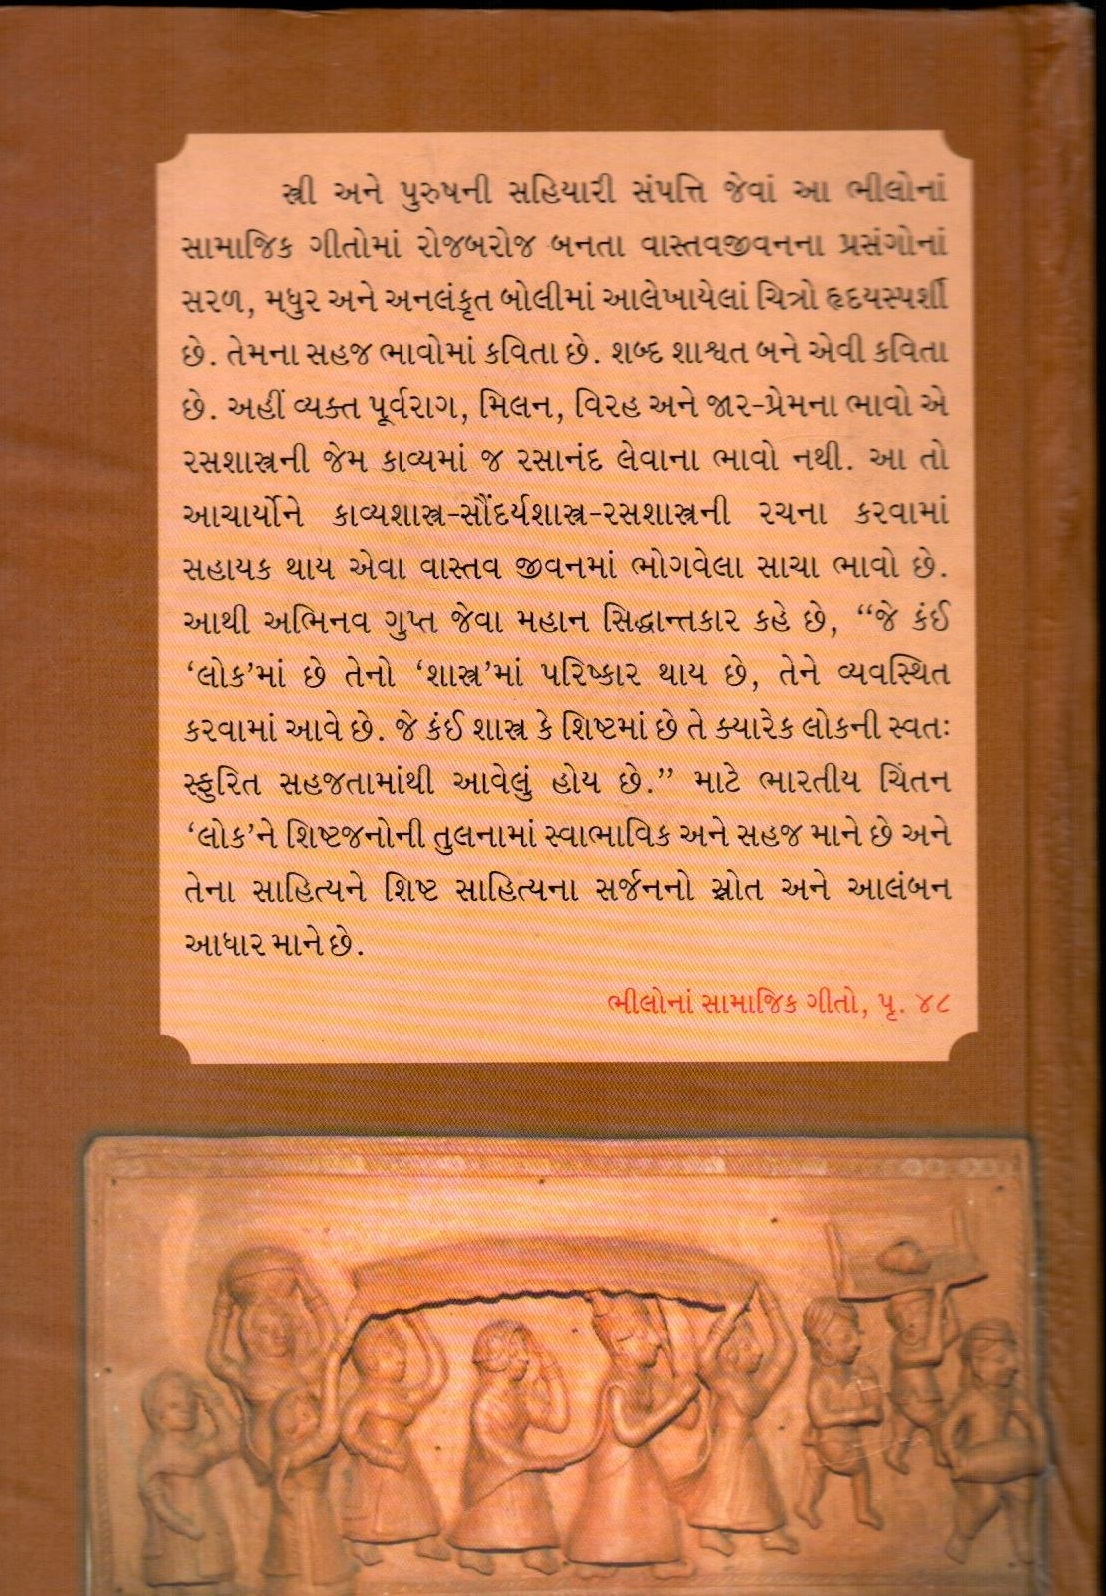 સ્ત્રી અને પુરુષની સહિયારી સંપત્તિ જેવાં આ ભીલોનાં
સામાજિક ગીતોમાં રોજબરોજ બનતા વાસ્તવજીવનના પ્રસંગોનાં
સરળ, મધુર અને અનલંકૃત બોલીમાં આલેખાયેલાં ચિત્રો હૃદયસ્પર્શી
છે. તેમના સહજ ભાવોમાં કવિતા છે. શબ્દ શાશ્વત બને એવી કવિતા
છે. અહીં વ્યક્ત પૂર્વરાગ, મિલન, વિરહ અને જાર-પ્રેમના ભાવો એ
રસશાસ્ત્રની જેમ કાવ્યમાં જ રસાનંદ લેવાના ભાવો નથી. આ તો
આચાર્યોને કાવ્યશાસ્ત્ર-સૌંદર્યશાસ્ત્ર-રસશાસ્ત્રની રચના કરવામાં
સહાયક થાય એવા વાસ્તવ જીવનમાં ભોગવેલા સાચા ભાવો છે.
આથી અભિનવ ગુપ્ત જેવા મહાન સિદ્ધાન્તકાર કહે છે, “જે કંઈ
‘લોક’માં છે તેનો ‘શાસ્ત્ર’માં પરિષ્કાર થાય છે, તેને વ્યવસ્થિત
કરવામાં આવે છે. જે કંઈ શાસ્ત્ર કે શિષ્ટમાં છે તે ક્યારેક લોકની સ્વતઃ
સ્ફુરિત સહજતામાંથી આવેલું હોય છે.” માટે ભારતીય ચિંતન
‘લોક’ને શિષ્ટજનોની તુલનામાં સ્વાભાવિક અને સહજ માને છે અને
તેના સાહિત્યને શિષ્ટ સાહિત્યના સર્જનનો સ્રોત અને આલંબન
આધાર માને છે.
ભીલોનાં સામાજિક ગીતો, પૃ. ૪૮